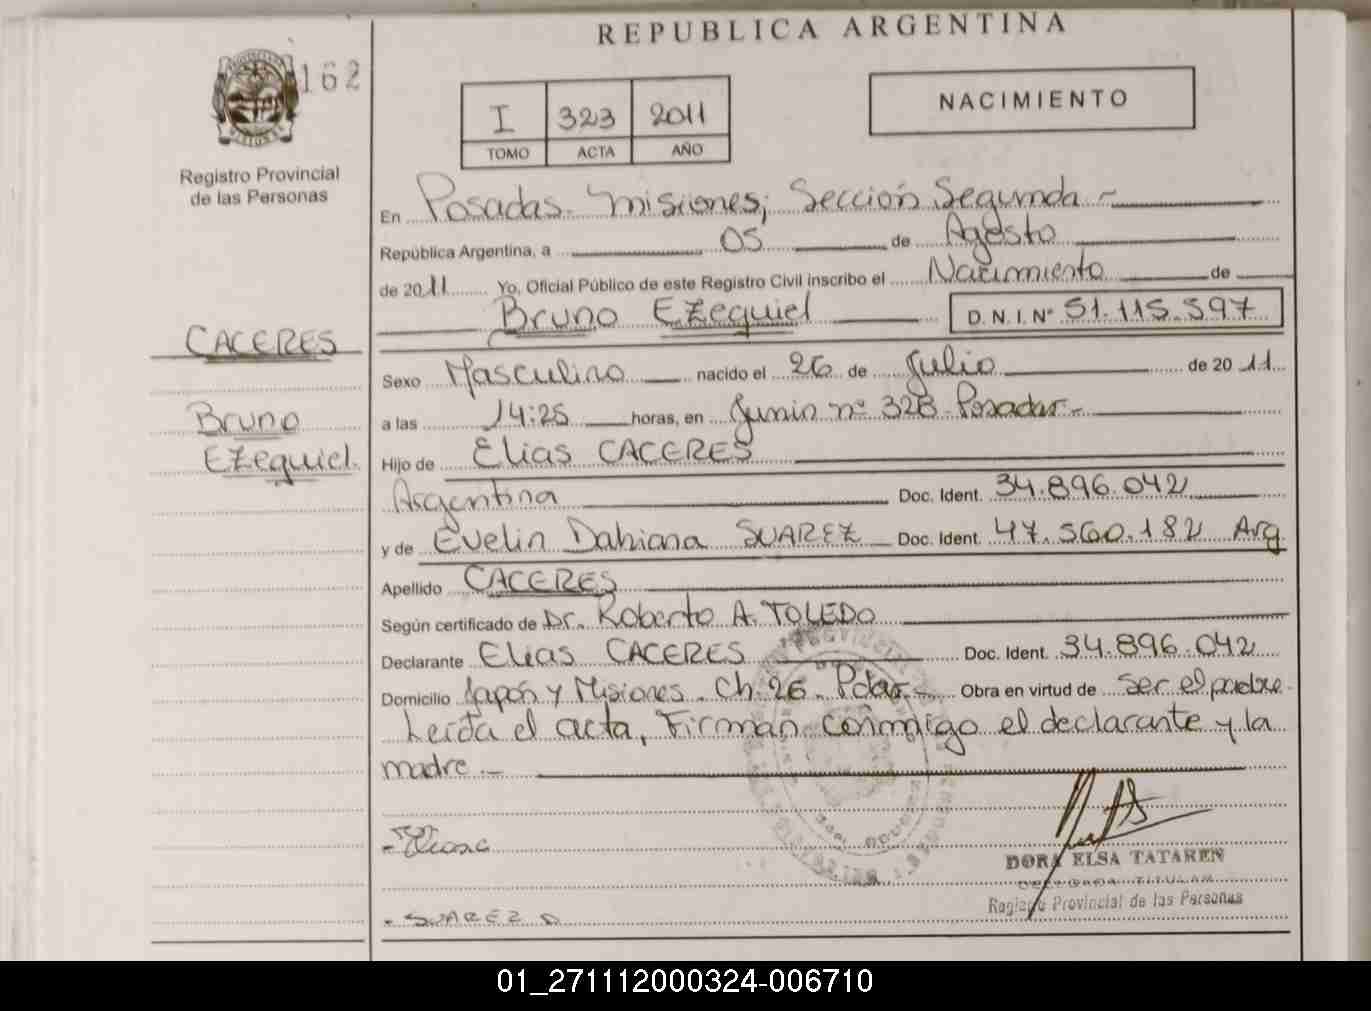 REPUBLICA ARGENTINA
162
I 323 2011
TOMO ACTA AÑO
NACIMIENTO
Registro Provincial
de las Personas
En Posadas. Misiones; Sección Segunda.-
República Argentina, a 05 de Agosto
de 2011 Yo, Oficial Público de este Registro Civil inscribo el Nacimiento de
Bruno EZequiel D.N.I. Nº 51.115.597
CACERES
Bruno
EZequiel.
Sexo Masculino nacido el 26 de Julio de 2011
a las 14:25 horas, en Junin nº 328 Posadas.-
Hijo de Elias CACERES
Argentina Doc. Ident. 34.896.042
y de Evelin Dahiana SUAREZ Doc. Ident. 47.560.182 Arg
Apellido CACERES
Según certificado de Dr. Roberto A. TOLEDO
Declarante Elias CACERES Doc. Ident. 34.896.042
Domicilio Japón y Misiones. Ch. 26. Pdas.- Obra en virtud de ser el padre.
Leída el acta, Firman conmigo el declarante y la
madre.-
- SUAREZ D
DORA ELSA TATAREN
DELEGADA TITULAR
Registro Provincial de las Personas
01_271112000324-006710